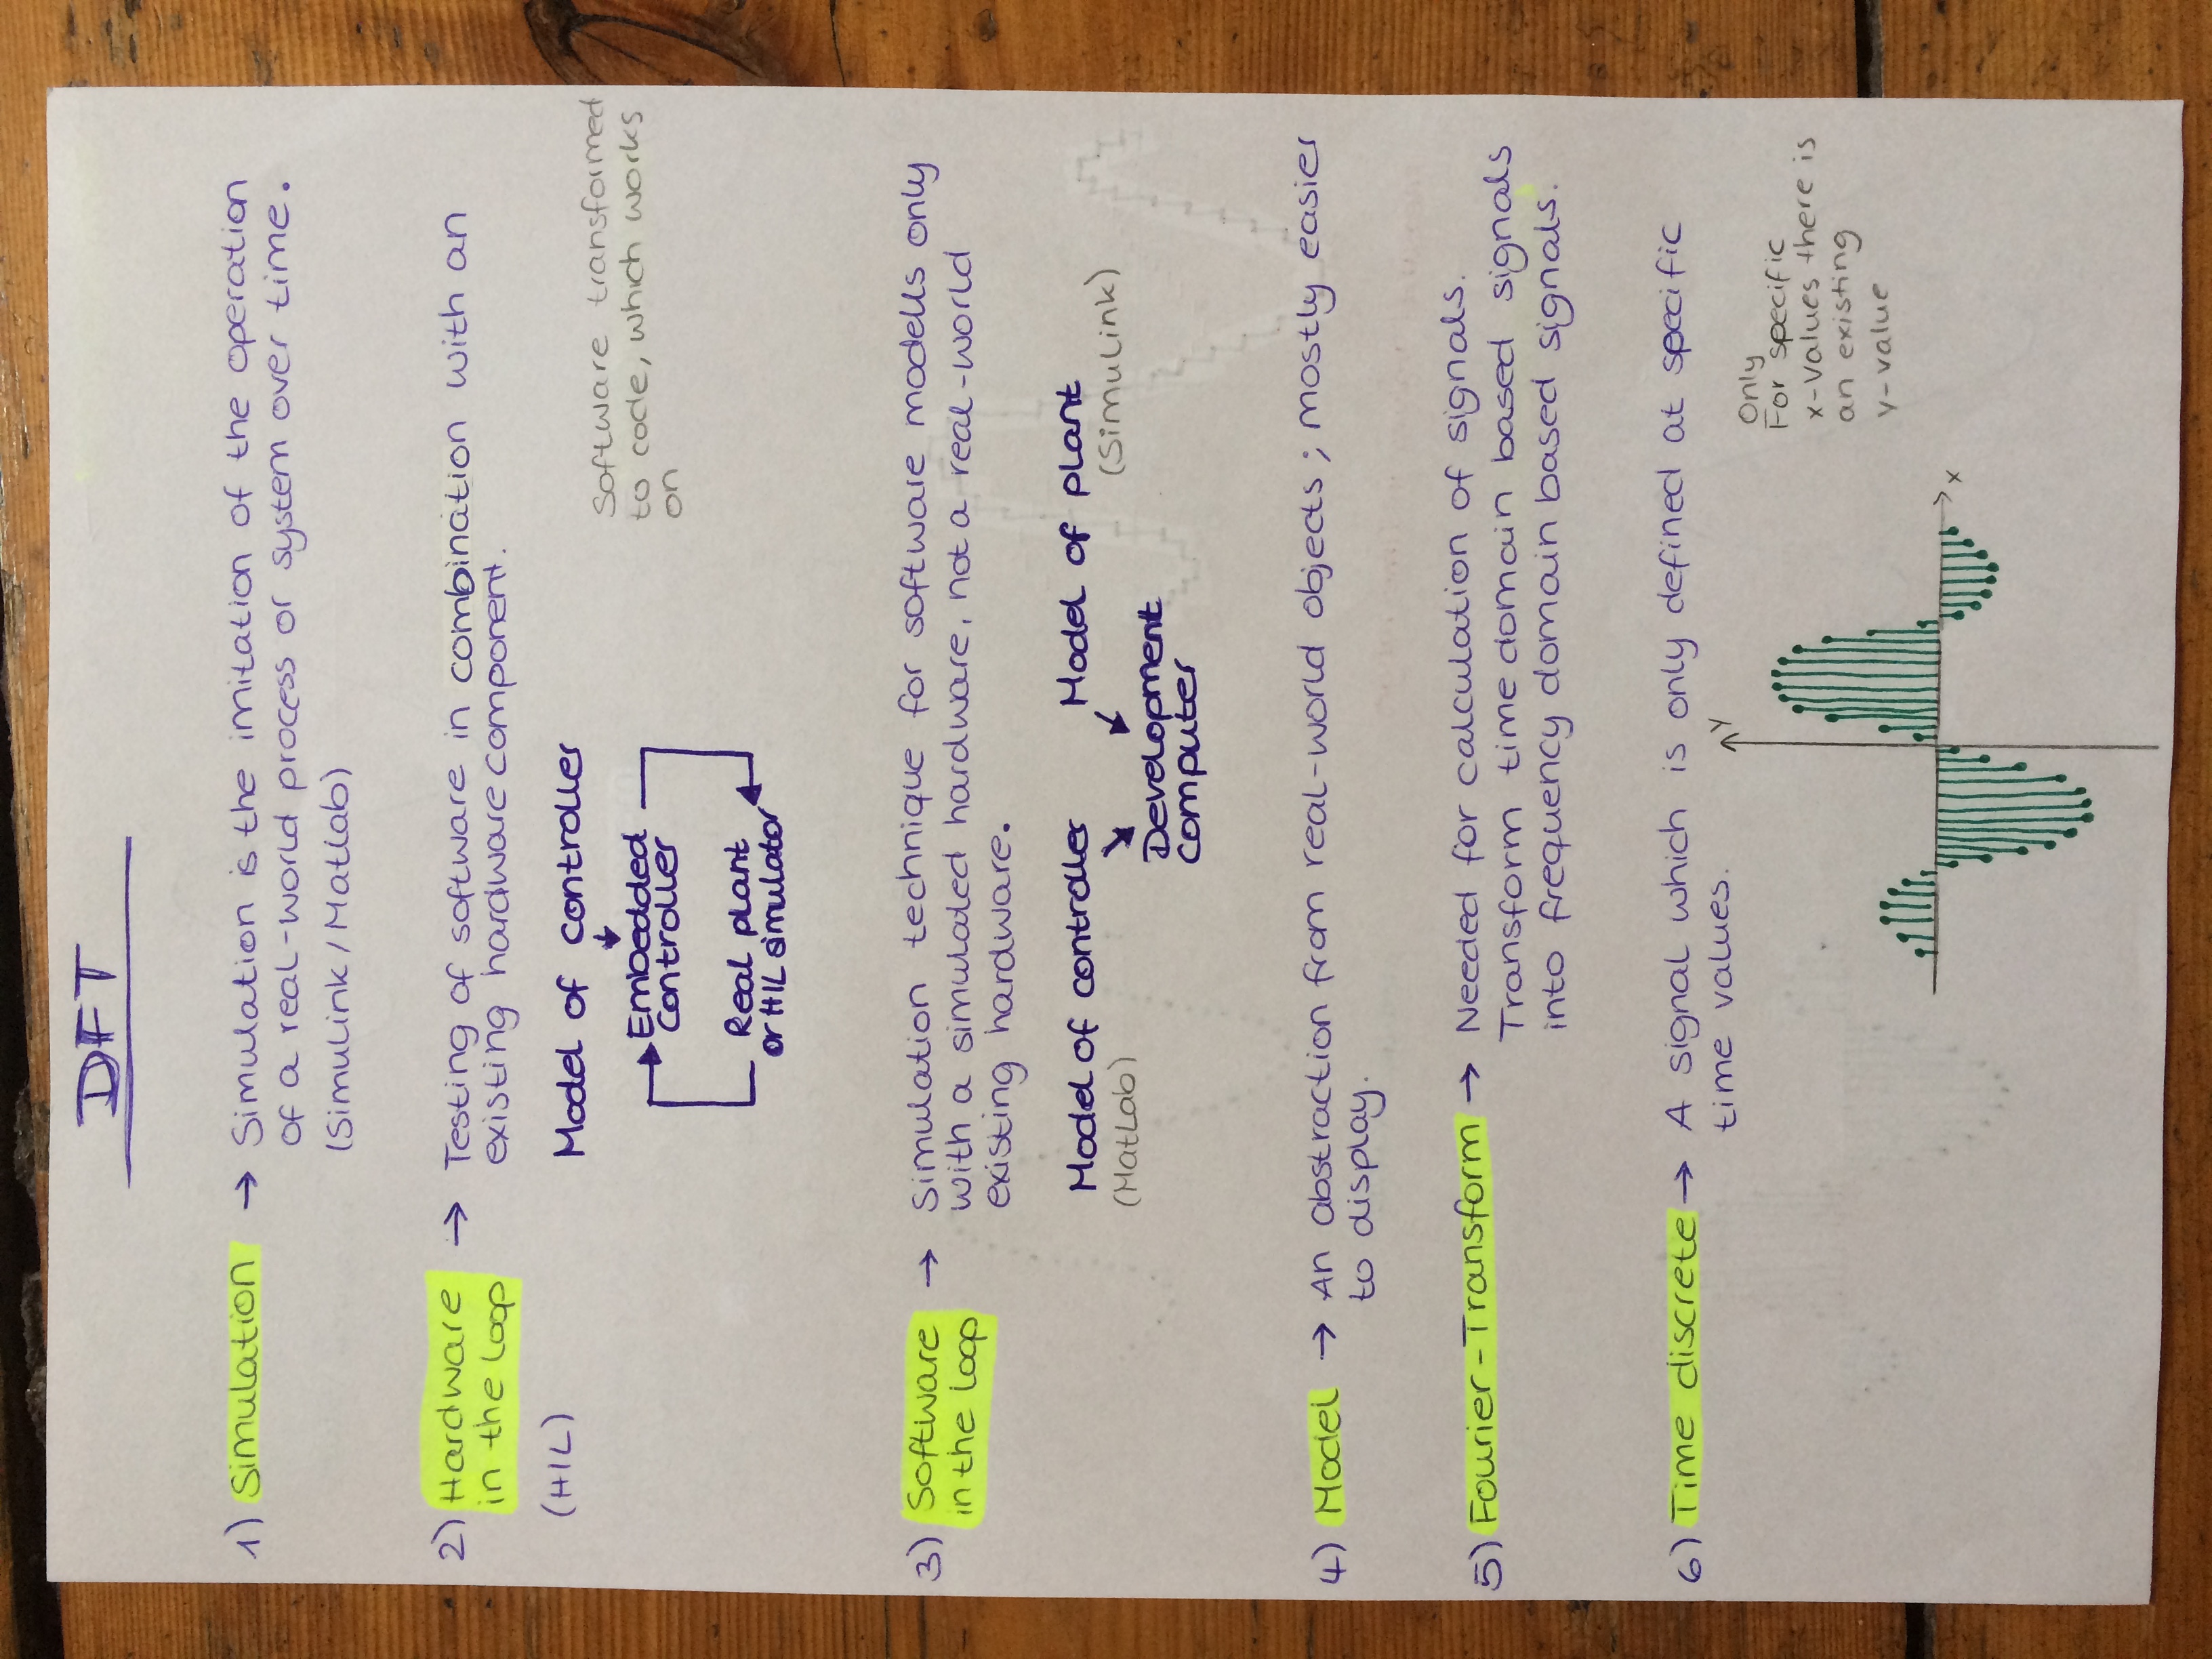 DFT
1) Simulation → Simulation is the imitation of the operation
of a real-world process or system over time.
(Simulink / Matlab)
2) Hardware → Testing of software in combination with an
in the loop existing hardware component.
(HIL)
Model of controller
Software transformed
to code, which works
on
Embedded
controller
Real plant
or HIL simulator
3) Software → Simulation technique for software modells only
in the loop with a simulated hardware, not a real-world
existing hardware.
Model of controller Model of plant
(MatLab) (Simulink)
Development
computer
4) Model → An abstraction from real-world objects; mostly easier
to display.
5) Fourier-Transform → Needed for calculation of signals.
Transform time domain based signals
into frequency domain based signals.
6) Time discrete → A signal which is only defined at specific
time values.
Y
Only
For specific
x-values there is
an existing
y-value
x